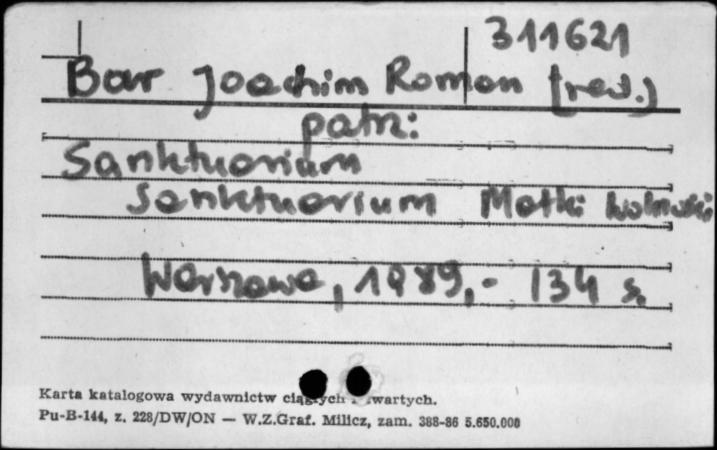 311621
Bar Joachim Roman (red.)
patrz:
Sanktuarium
Sanktuarium Matki Wolności
Warszawa, 1989,- 134 s.
Karta katalogowa wydawnictw ciągłych i zwartych.
Pu-B-144, z. 228/DW/ON — W.Z.Graf. Milicz, zam. 388-86 5.650.000